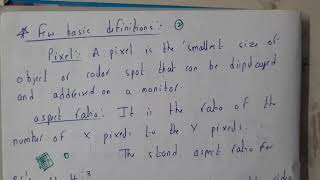 * Few basic definitions:- 2
Pixel:- A pixel is the smallest size of
object or color spot that can be displayed
and addressed on a monitor.
aspect ratio:- It is the ratio of the
number of X pixels to the Y pixels.
The stand aspect ratio for
4:3